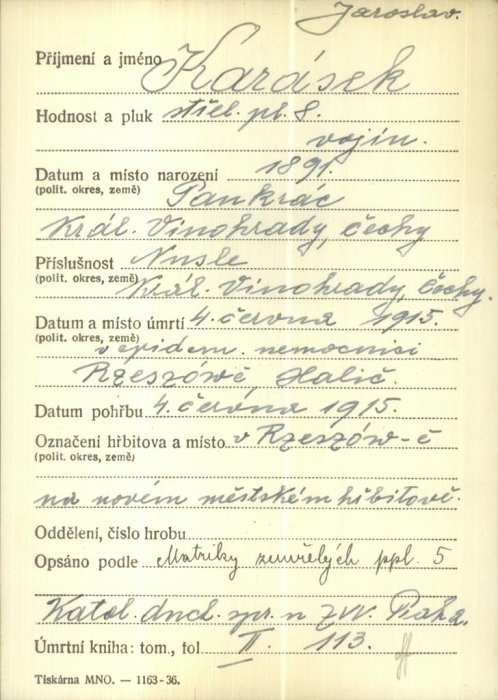 Jaroslav.
Příjmení a jméno Karásek
Hodnost a pluk střel. pl. 8.
vojín.
Datum a místo narození 1891.
(polit. okres, země) Pankrác
Král. Vinohrady, Čechy
Příslušnost Nusle
(polit. okres, země) Král. Vinohrady, Čechy.
Datum a místo úmrtí 4. června 1915.
(polit. okres, země) v epidem. nemocnici
Rzeszówě, Halič.
Datum pohřbu 4. června 1915.
Označení hřbitova a místo v Rzeszów-ě
(polit. okres, země)
na novém městském hřbitově.
Oddělení, číslo hrobu
Opsáno podle Matriky zemřelých ppl. 5
Katol. duch. spr. n ZVV. Praha.
Úmrtní kniha: tom., fol II. 113.
Tiskárna MNO. — 1163-36.